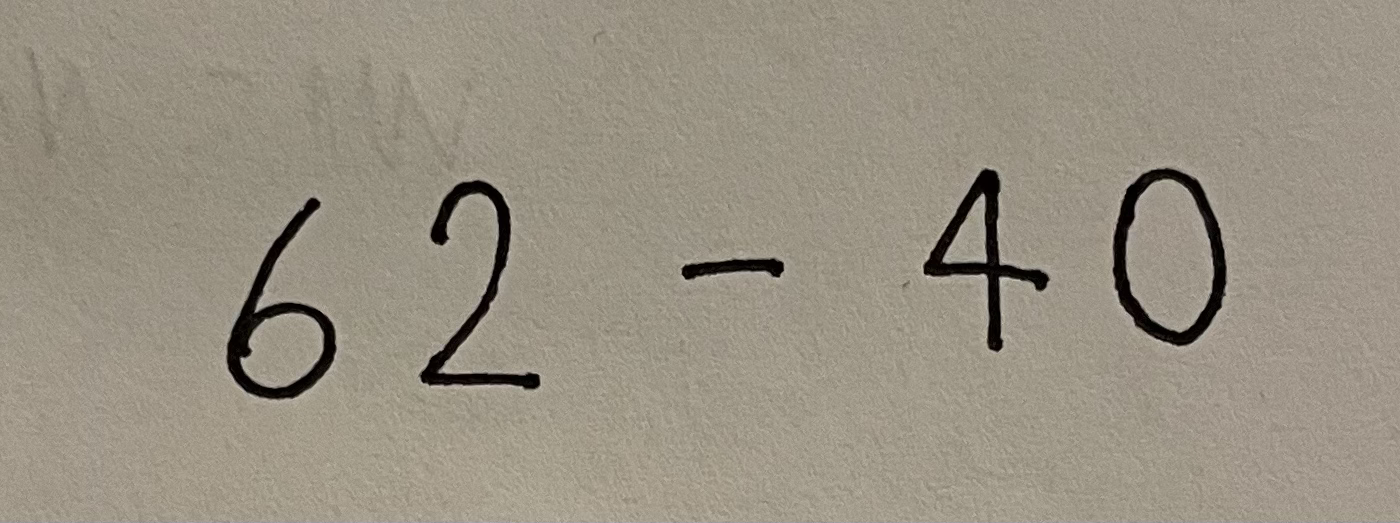 62 - 40